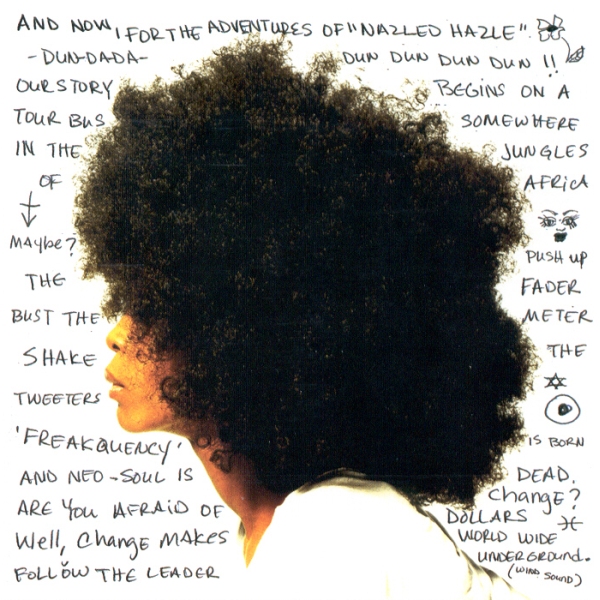 AND NOW, FOR THE ADVENTURES OF "NAZLED HAZLE"
-DUN-DADA- DUN DUN DUN DUN !!
OUR STORY BEGINS ON A
TOUR BUS SOMEWHERE
IN THE JUNGLES
OF AFRICA
MAYbe?
PUSH UP
THE FADER
BUST THE METER
SHAKE THE
TWEETERS
'FREAKQUENCY' IS BORN
AND NEO-SOUL IS DEAD.
ARE YOU AFRAID OF Change?
Well, Change MAKES DOLLARS
FOLLOW THE LEADER WORLD WIDE
UNDERGROUND.
(WIND SOUND)